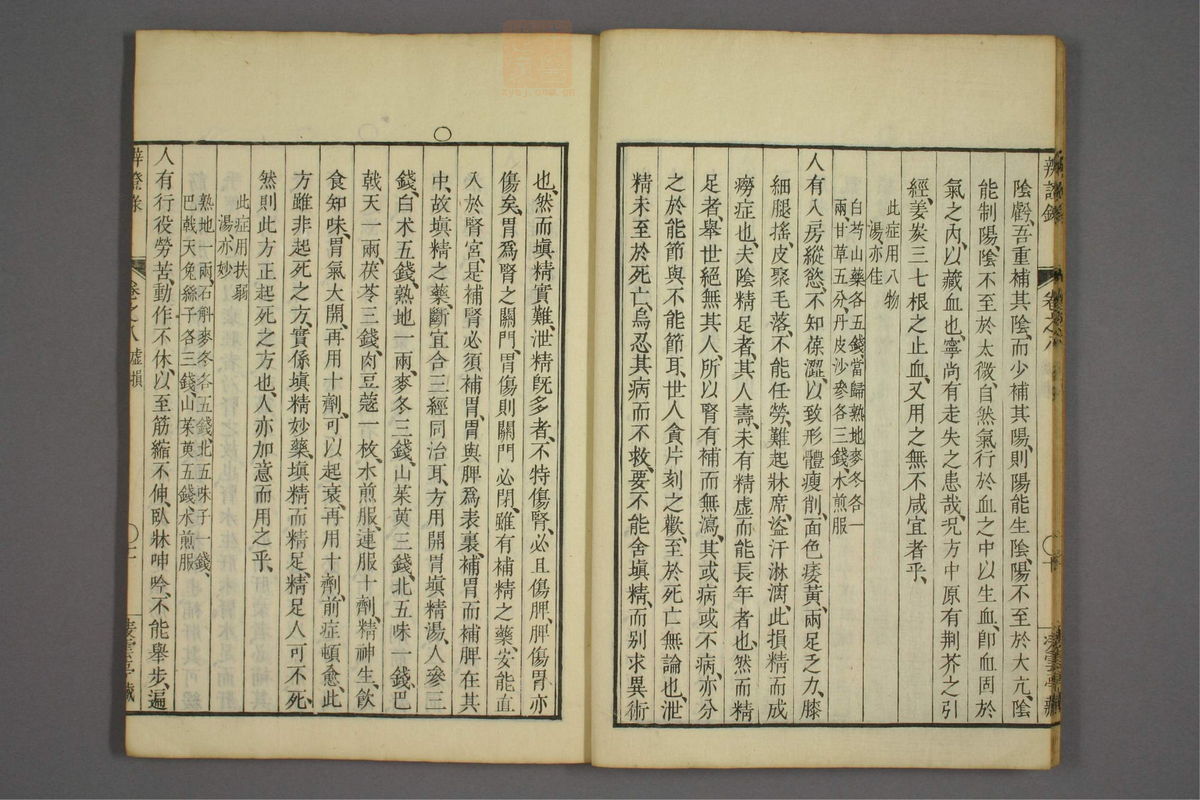 辨證錄 卷之八 凌雲亭藏
陰虧、吾重補其陰、而少補其陽、則陽能生陰、陽不至於大亢、陰
能制陽、陰不至於太微、自然氣行於血之中以生血、卽血固於
氣之內、以藏血也、寧尚有走失之患哉、况方中原有荆芥之引
經、姜炭三七根之止血、又用之無不咸宜者乎、
此症用八物
湯亦佳
白芍山藥各五錢當歸熟地麥冬各一
兩、甘草五分、丹皮沙參各三錢、水煎服
人有入房縱慾、不知葆澀、以致形體瘦削、面色痿黃、兩足乏力、膝
細腿搖、皮聚毛落、不能任勞、難起牀席、盗汗淋漓、此損精而成
癆症也、夫陰精足者、其人壽、未有精虛而能長年者也、然而精
足者、舉世絕無其人、所以腎有補而無瀉、其或病或不病、亦分
之於能節與不能節耳、世人貪片刻之歡、至於死亡無論也、泄
精未至於死亡、烏忍其病而不救、要不能舍塡精、而别求異術
也、然而塡精實難、泄精旣多者、不特傷腎、必且傷脾、脾傷胃亦
傷矣、胃爲腎之關門、胃傷則關門必閉、雖有補精之藥、安能直
入於腎宮、是補腎必須補胃、胃與脾爲表裏、補胃而補脾在其
中、故塡精之藥、斷宜合三經同治耳、方用開胃塡精湯、人參三
錢、白术五錢、熟地一兩、麥冬三錢、山茱萸三錢、北五味一錢、巴
戟天一兩、茯苓三錢、肉豆蔻一枚、水煎服、連服十劑、精神生、飲
食知味、胃氣大開、再用十劑、可以起衰、再用十劑、前症頓愈、此
方雖非起死之方、實係塡精妙藥、塡精而精足、精足人可不死、
然則此方正起死之方也、人亦加意而用之乎、
此症用扶弱
湯亦妙
熟地一兩、石斛麥冬各五錢、北五味子一錢、
巴戟天兔絲子各三錢、山茱萸五錢、水煎服
人有行役勞苦、動作不休、以至筋縮不伸、臥牀呻吟、不能舉步、遍
辨證錄 卷之八 虛損 凌雲亭藏